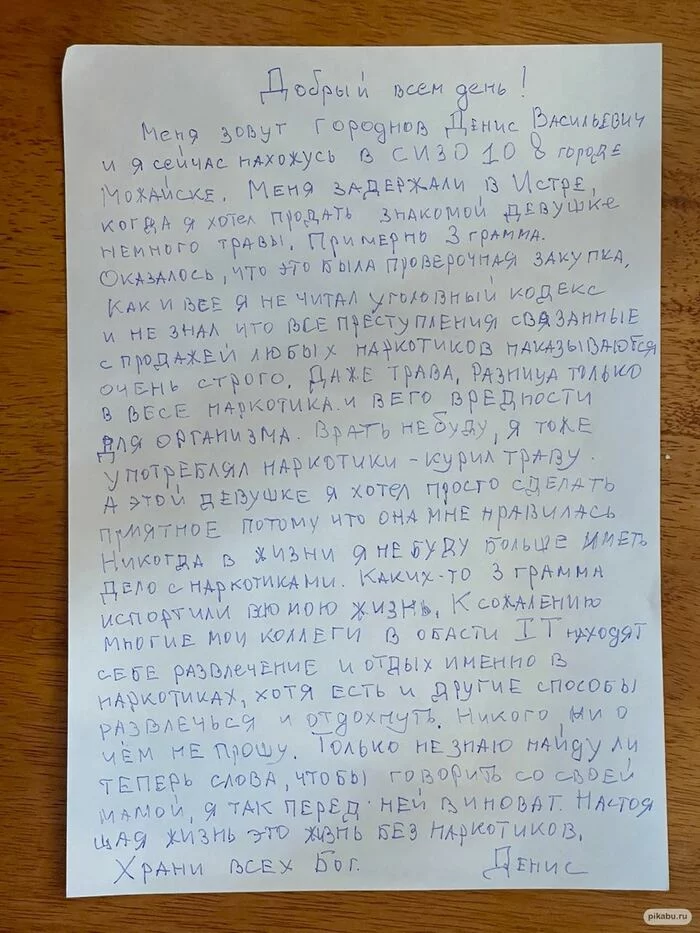 Добрый всем день!
Меня зовут Городнов Денис Васильевич
и я сейчас нахожусь в СИЗО 10 в городе
Можайске. Меня задержали в Истре,
когда я хотел продать знакомой девушке
немного травы. Примерно 3 грамма.
Оказалось, что это была проверочная закупка.
Как и все я не читал уголовный кодекс
и не знал что все преступления связанные
с продажей любых наркотиков наказываются
очень строго. Даже трава, разница только
в весе наркотика и в его вредности
для организма. Врать не буду, я тоже
употреблял наркотики - курил траву.
А этой девушке я хотел просто сделать
приятное потому что она мне нравилась
Никогда в жизни я не буду больше иметь
дело с наркотиками. Каких-то 3 грамма
испортили всю мою жизнь. К сожалению
многие мои коллеги в обасти IT находят
себе развлечение и отдых именно в
наркотиках, хотя есть и другие способы
развлечься и отдохнуть. Никого ни о
чём не прошу. Только не знаю найду ли
теперь слова, чтобы говорить со своей
мамой, я так перед ней виноват. Настоя
щая жизнь это жизнь без наркотиков.
Храни всех Бог. Денис
pikabu.ru